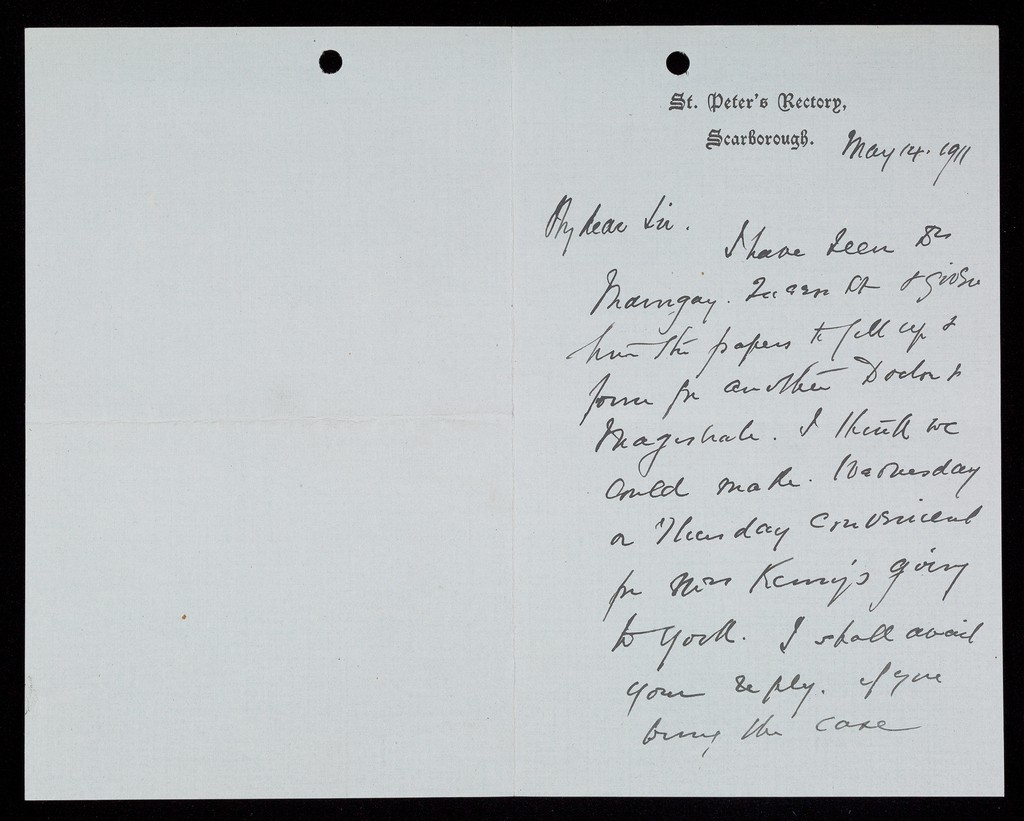 St. Peter's Rectory,
Scarborough.
May 14. 1911
My dear Sir.
I have seen Dr
&
him the papers to fill up &
form for another Doctor &
Magistrate. I think we
could make Wednesday
or Thursday convenient
for Miss Kenny's going
to York. I shall await
your reply. If you
bring the case